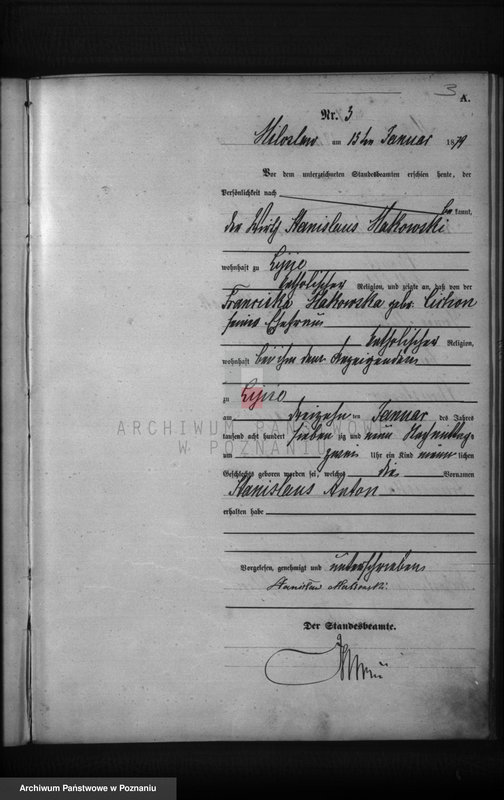 3
A.
Nr. 3
Miloslaw am 15ten Januar 1879
Vor dem unterzeichneten Standesbeamten erschien heute, der
Persönlichkeit nach
be kannt,
der Wirth Stanislaus Matkowski
wohnhaft zu
katholischer Religion, und zeigte an, daß von der
Franciska Matkowska geb.
seiner Ehefrau
katholischer Religion,
wohnhaft bei ihm dem Anzeigenden
zu
am dreizehnten Januar des Jahres
tausend acht hundert sieben zig und neun Nachmittags
um zwei Uhr ein Kind männlichen
Geschlechts geboren worden sei, welches die Vornamen
Stanislaus Anton
erhalten habe
Vorgelesen, genehmigt und unterschrieben
Stanisław Matkowski
Der Standesbeamte.
ARCHIWUM PAŃSTWOWE
W POZNANIU
Archiwum Państwowe w Poznaniu